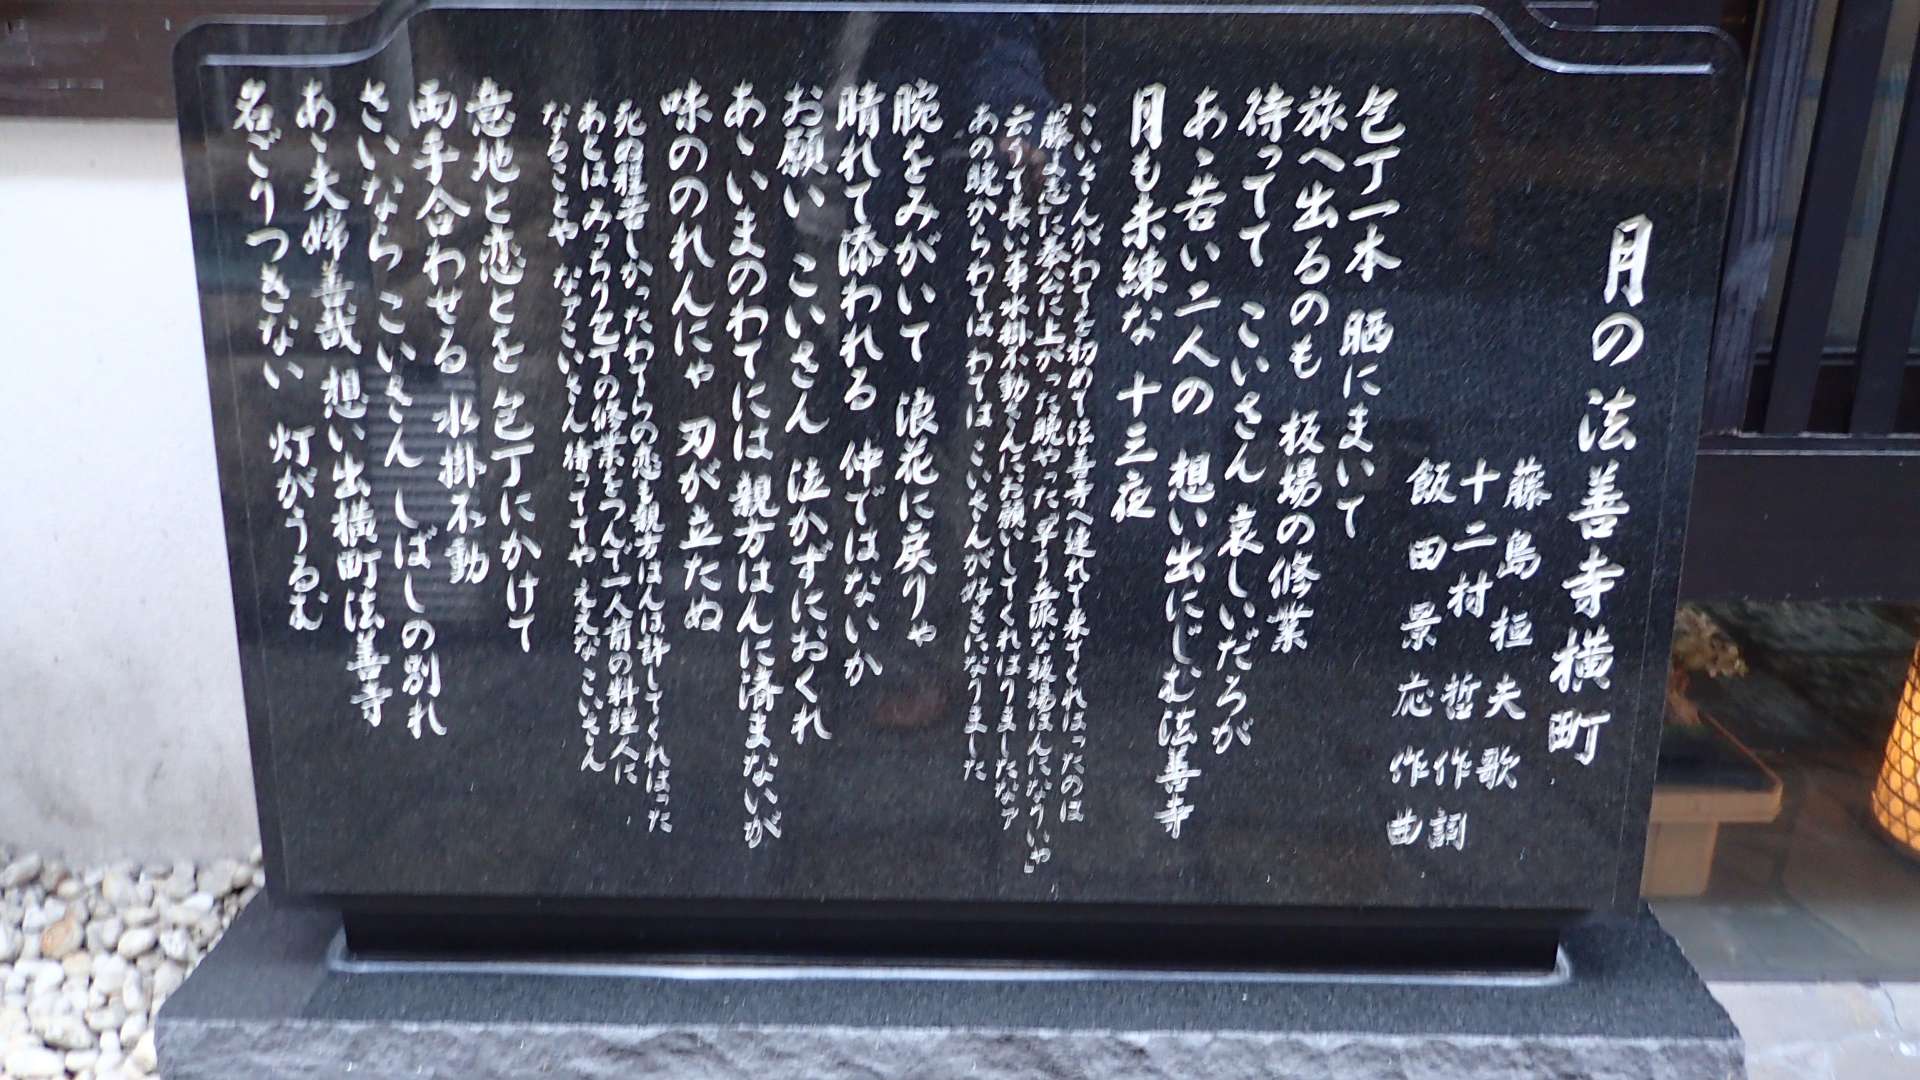 月の法善寺横町
藤島桓夫歌
十二村哲作詞
飯田景応作曲
包丁一本 晒にまいて
旅へ出るのも 板場の修業
待ってて こいさん 哀しいだろが
あゝ若い二人の 想い出にじむ法善寺
月も未練な 十三夜
こいさんがわてを初めて法善寺へ連れて来てくれはったのは
「藤よ志」に奉公に上がった晩やった「早う立派な板場はんになりいや」
云うて長い事水掛不動さんにお願いしてくれはりましたなァ
あの晩からわてはわてはこいさんが好きになりました
腕をみがいて 浪花に戻りゃ
晴れて添われる 仲ではないか
お願い こいさん 泣かずにおくれ
あゝいまのわてには 親方はんに済まないが
味ののれんにゃ 刃が立たぬ
死ぬ程苦しかったわてらの恋も親方はんは許してくれはった
あとはみっちり包丁の修業をつんで一人前の料理人に
なることや なァこいさん待っててや ええなこいさん
意地と恋とを 包丁にかけて
両手合わせる 水掛不動
さいなら こいさん しばしの別れ
あゝ夫婦善哉 想い出横町法善寺
名ごりつきない 灯がうるむ